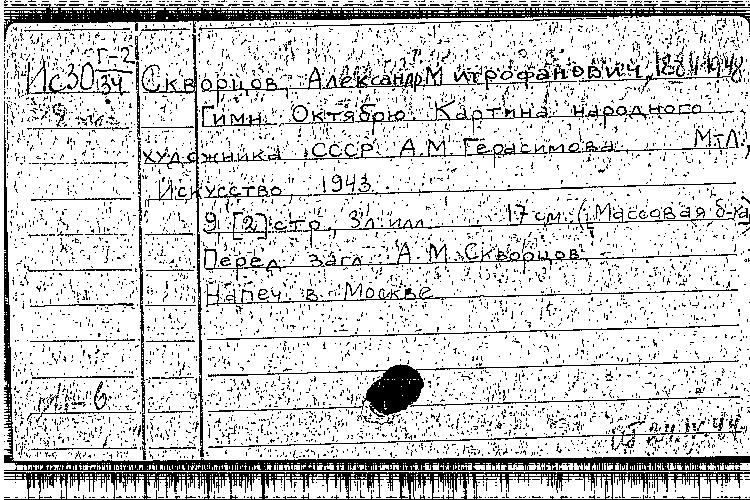 Ис30 Г-2
34
Скворцов, Александр Митрофанович,
Гимн Октябрю. Картина народного
художника СССР А.М Герасимова М;Л,
Искусство, 1943.
9 [2] стр., 3л илл. 17 см. (Массовая б-ка)
Перед загл. А.М. Скворцов
Напеч. в Москве